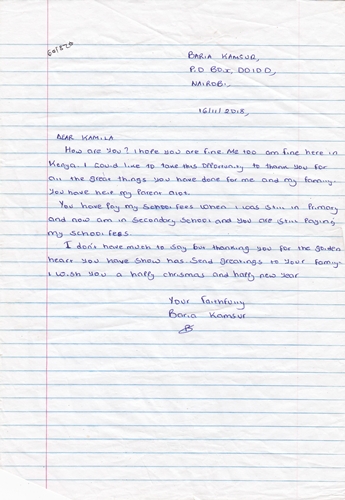 601520
BARIA KAMSUR,
P.O BOX, 00100,
NAIROBI,
16/11/2018,
DEAR KAMILA
How are you? I hope you are fine Me too am fine here in
Kenya. I could like to take this opportunity to thank you for
all the great things you have done for me and my family
You have help my Parent alot.
You have Pay my School fees when I was still in Primary
and now am in Secondary School and you are still Paying
my School fees
I don't have much to say but thanking you for the golden
heart you have show has. Send greetings to your family.
I wish you a happy chrismas and happy new year
Your Faithfully
Baria Kamsur